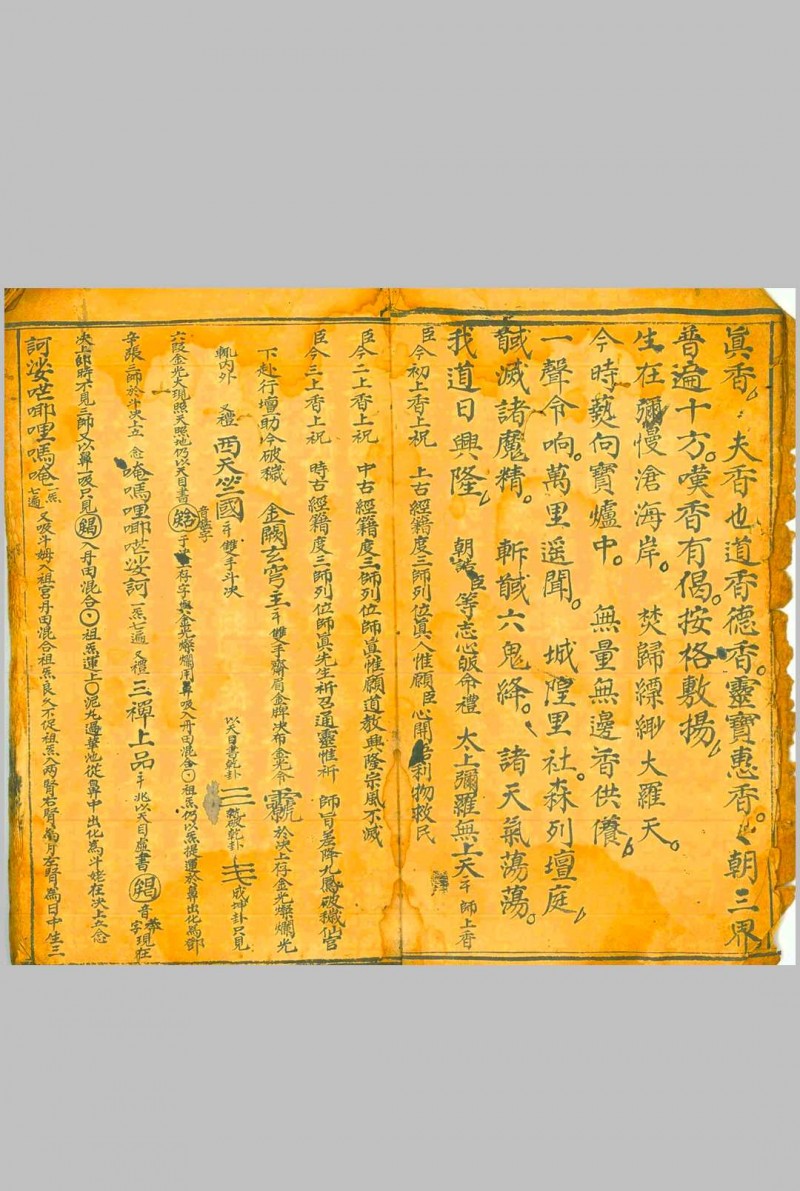 真香。夫香也道香德香。靈寶惠香。朝三界
普遍十方。嘆香有偈。按格敷揚。
生在彌慢滄海岸。焚歸縹緲大羅天。
今時爇向寶爐中。無量無邊香供養。
一聲令响。萬里遥聞。城隍里社。森列壇庭。
馘滅諸魔精。斬馘六鬼鋒。諸天氣蕩蕩。
我道日興隆。朝誥臣等志心皈命禮 太上彌羅無上天 師上香
臣今初上香上祝 上古經籍度三師列位真人惟願臣心開 利物救民
臣今二上香上祝 中古經籍度三師列位師真惟願道教興隆宗風不滅
臣今三上香上祝 時古經籍度三師列位師真先生祈召通靈惟祈 師旨差降九鳳破穢仙官
下赴行壇助今破穢 金闕玄穹主 雙手齋眉金牌决布金光令 於决上存金光燦爛光
軋内外 又禮 西天竺國 雙手斗决 以天目書乾卦 三 乾卦 成坤卦只見
六叚金光大現照天照地仍以天目書 音 字 存字與金光燦爛用鼻吸入丹田混合 祖炁仍以炁提運於鼻出化為鄧
辛張三師於斗决上立 念 唵嗎哩㖿 娑訶 一炁七遍 又禮 三禪上品 兆以天目虚書 音 字現在
决上即時不見三師又以鼻一吸只見 入丹田混合 祖炁運上〇泥丸過華池從鼻中出化為斗姥在决上立念
訶娑 㖿哩嗎唵 一炁七遍 又吸斗姆入祖宮丹田混合祖炁良久不促祖炁入两腎右腎為月左腎為日中生三